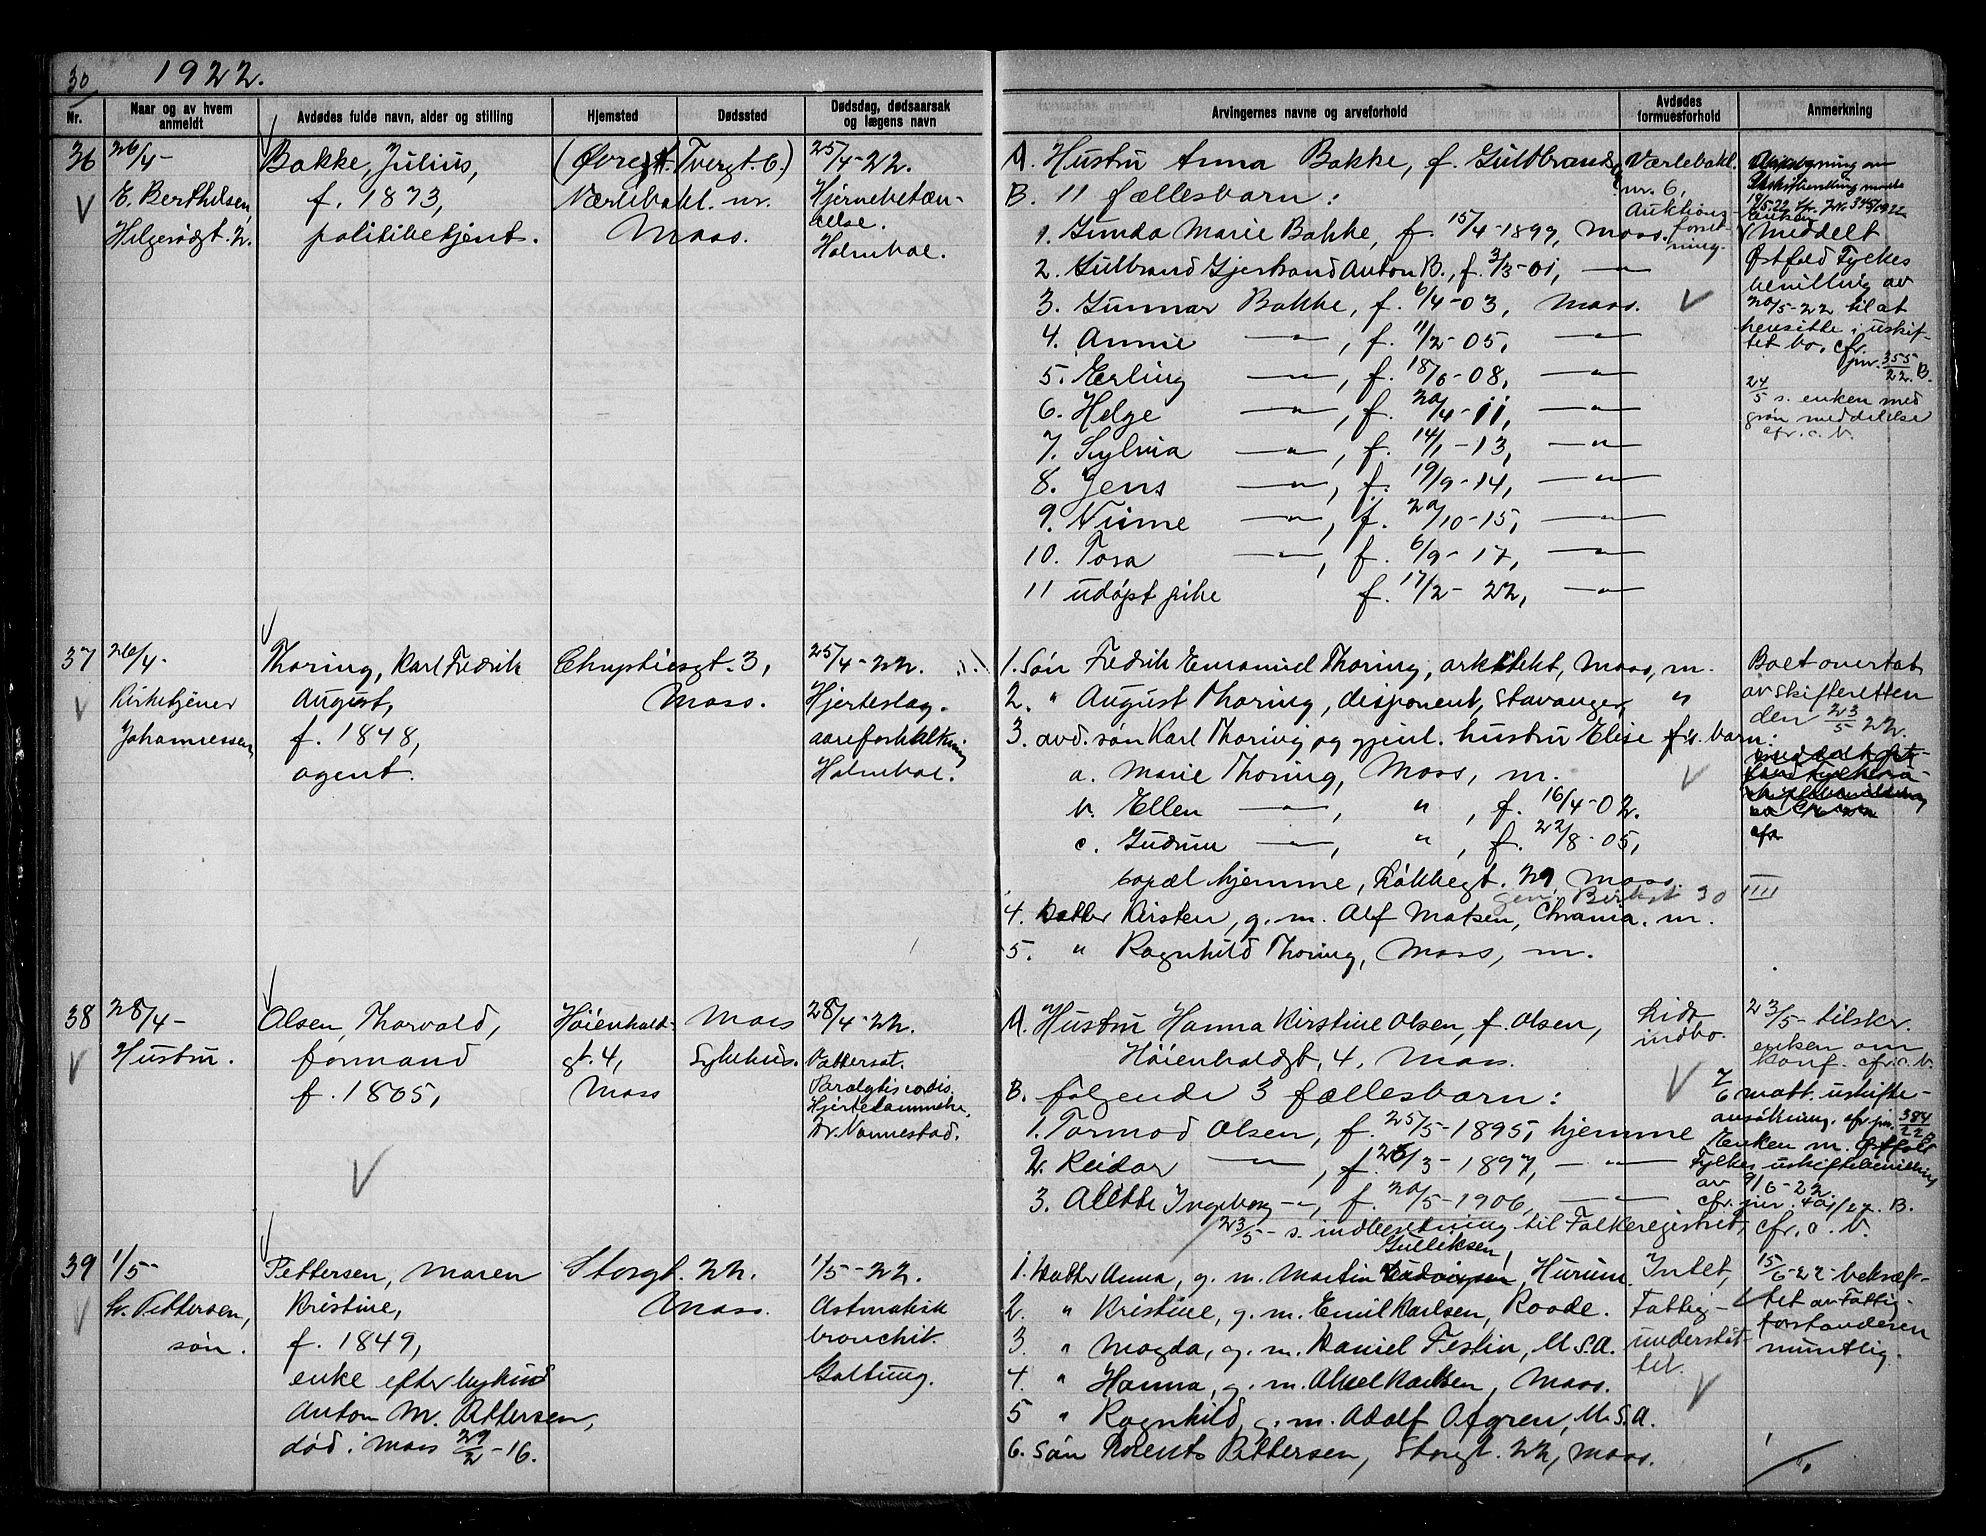 30
1922.
Nr.
Naar og av hvem anmeldt
Avdødes fulde navn, alder og stilling
Hjemsted
Dødssted
Dødsdag, dødsaarsak og lægens navn
Arvingernes navne og arveforhold
Avdødes formuesforhold
Anmerkning
36
26/4-
E. Berthelsen,
Helgerødgt. 2.
Bakke, Julius,
f. 1873,
politibetjent.
Tvergt. 6)
Værlebakl. nr.
Moss.
25/4-22.
Hjernebetæn-
delse.
Holmboe.
A. Hustru Anna Bakke, f. Gulbrandsen
B. 11 fællesbarn:
1. Gunda Marie Bakke, f. 15/4-1899, Moss.
2. Gulbrand Gjerstrand Anton B., f. 3/3-01, —"—
3. Gunnar Bakke, f. 6/4-03, Moss.
4. Annie —"—, f. 11/2-05, —"—
5. Erling —"—, f. 18/6-08, —"—
6. Helge —"—, f. 20/4-11, —"—
7. Sylvia —"—, f. 14/1-13, —"—
8. Jens —"—, f. 19/9-14, —"—
9. —"—, f. 20/10-15, —"—
10. Tora —"—, f. 6/9-17, —"—
11 udøpt pike f. 17/2-22, —"—
Værlebakl.
nr. 6,
Auktions-
forret-
ning.
meddelt
Østfold Fylkes
bevilling av
20/5-22 til at
hensitte i uskif-
tet bo, cfr.
jnr. 355/22. B.
24/5 s. enken med
grøn meddelelse
cfr. c. b.
37
26/4-
Kirketjener
Johannessen,
Thoring, Karl Fredrik
August,
f. 1848,
agent.
Chrystiesgt. 3,
Moss.
25/4-22.
Hjerteslag-
aareforkalkning
Holmboe.
1. Søn Fredrik Emanuel Thoring, arkitekt, Moss, m.
2. " August Thoring, disponent, Stavanger, "
3. avd. søn Karl Thoring og gjenl. hustru Elise f. barn:
a. Marie Thoring, Moss, m.
b. Ellen —"—, " , f. 16/4-02.
c. Gudrun —"—, " , f. 22/8-05,
bopæl hjemme, Løkkegt. 29 Moss.
30
4. Datter Kirsten, g. m. Alf Matsen, Chrania. m.
5. " Ragnhild Thoring, Moss, m.
Boet overtat
av skifteretten
den 23/5 22.
38
28/4-
Hustru.
Olsen, Thorvald,
formand
f. 1865,
Høienhald-
gt. 4,
Moss
Moss
Sykehus.
28/4-22.
Vattersot.
Paralytis cordis.
Hjertelammelse.
Dr. Vannestad.
A. Hustru Hanna Kirstine Olsen, f. Olsen,
Høienhaldgt. 4, Moss.
B. følgende 3 fællesbarn:
1. Tormod Olsen, f. 25/5-1895, hjemme
2. Reidar —"—, f. 26/3-1897, —"—
3. Alette Ingeborg —"—, f. 20/5-1906, —"—
23/5- s. indberetning til Folkeregistret, cfr. c. b.
Lidt
indbo.
23/5- tilskr.
enken om
konf. cfr. c. b.
7/6 mott. uskifte-
ansøkning, cfr. jnr. 384/22 B
Enken m. Østfold
Fylkes uskiftebevilling
av 9/6-22.
cfr. jnr. 401/22. B.
39
1/5-
Pettersen,
søn.
Pettersen, Maren
Kristine,
f. 1849,
enke efter bykusk
Anton M. Pettersen,
død i Moss 29/2-16.
Storgt. 22.
Moss.
1/5-22.
Astmatisk
bronchit.
Galtung.
Gulliksen,
1. Datter Anna, g. m. Martin Hurum.
2. " Kristine, g. m. Emil Karlsen, Raade.
3. " Magda, g. m. Daniel Festin, U.S.A.
4. " Hanna, g. m. Aksel Karlsen, Moss.
5 " Ragnhild, g. m. Adolf Ofgren, U.S.A.
6. Søn Pettersen, Storgt. 22, Moss.
Intet,
Fattig-
understøt-
tet.
15/6-22 bekræf-
tet av Fattig-
forstanderen
muntlig.